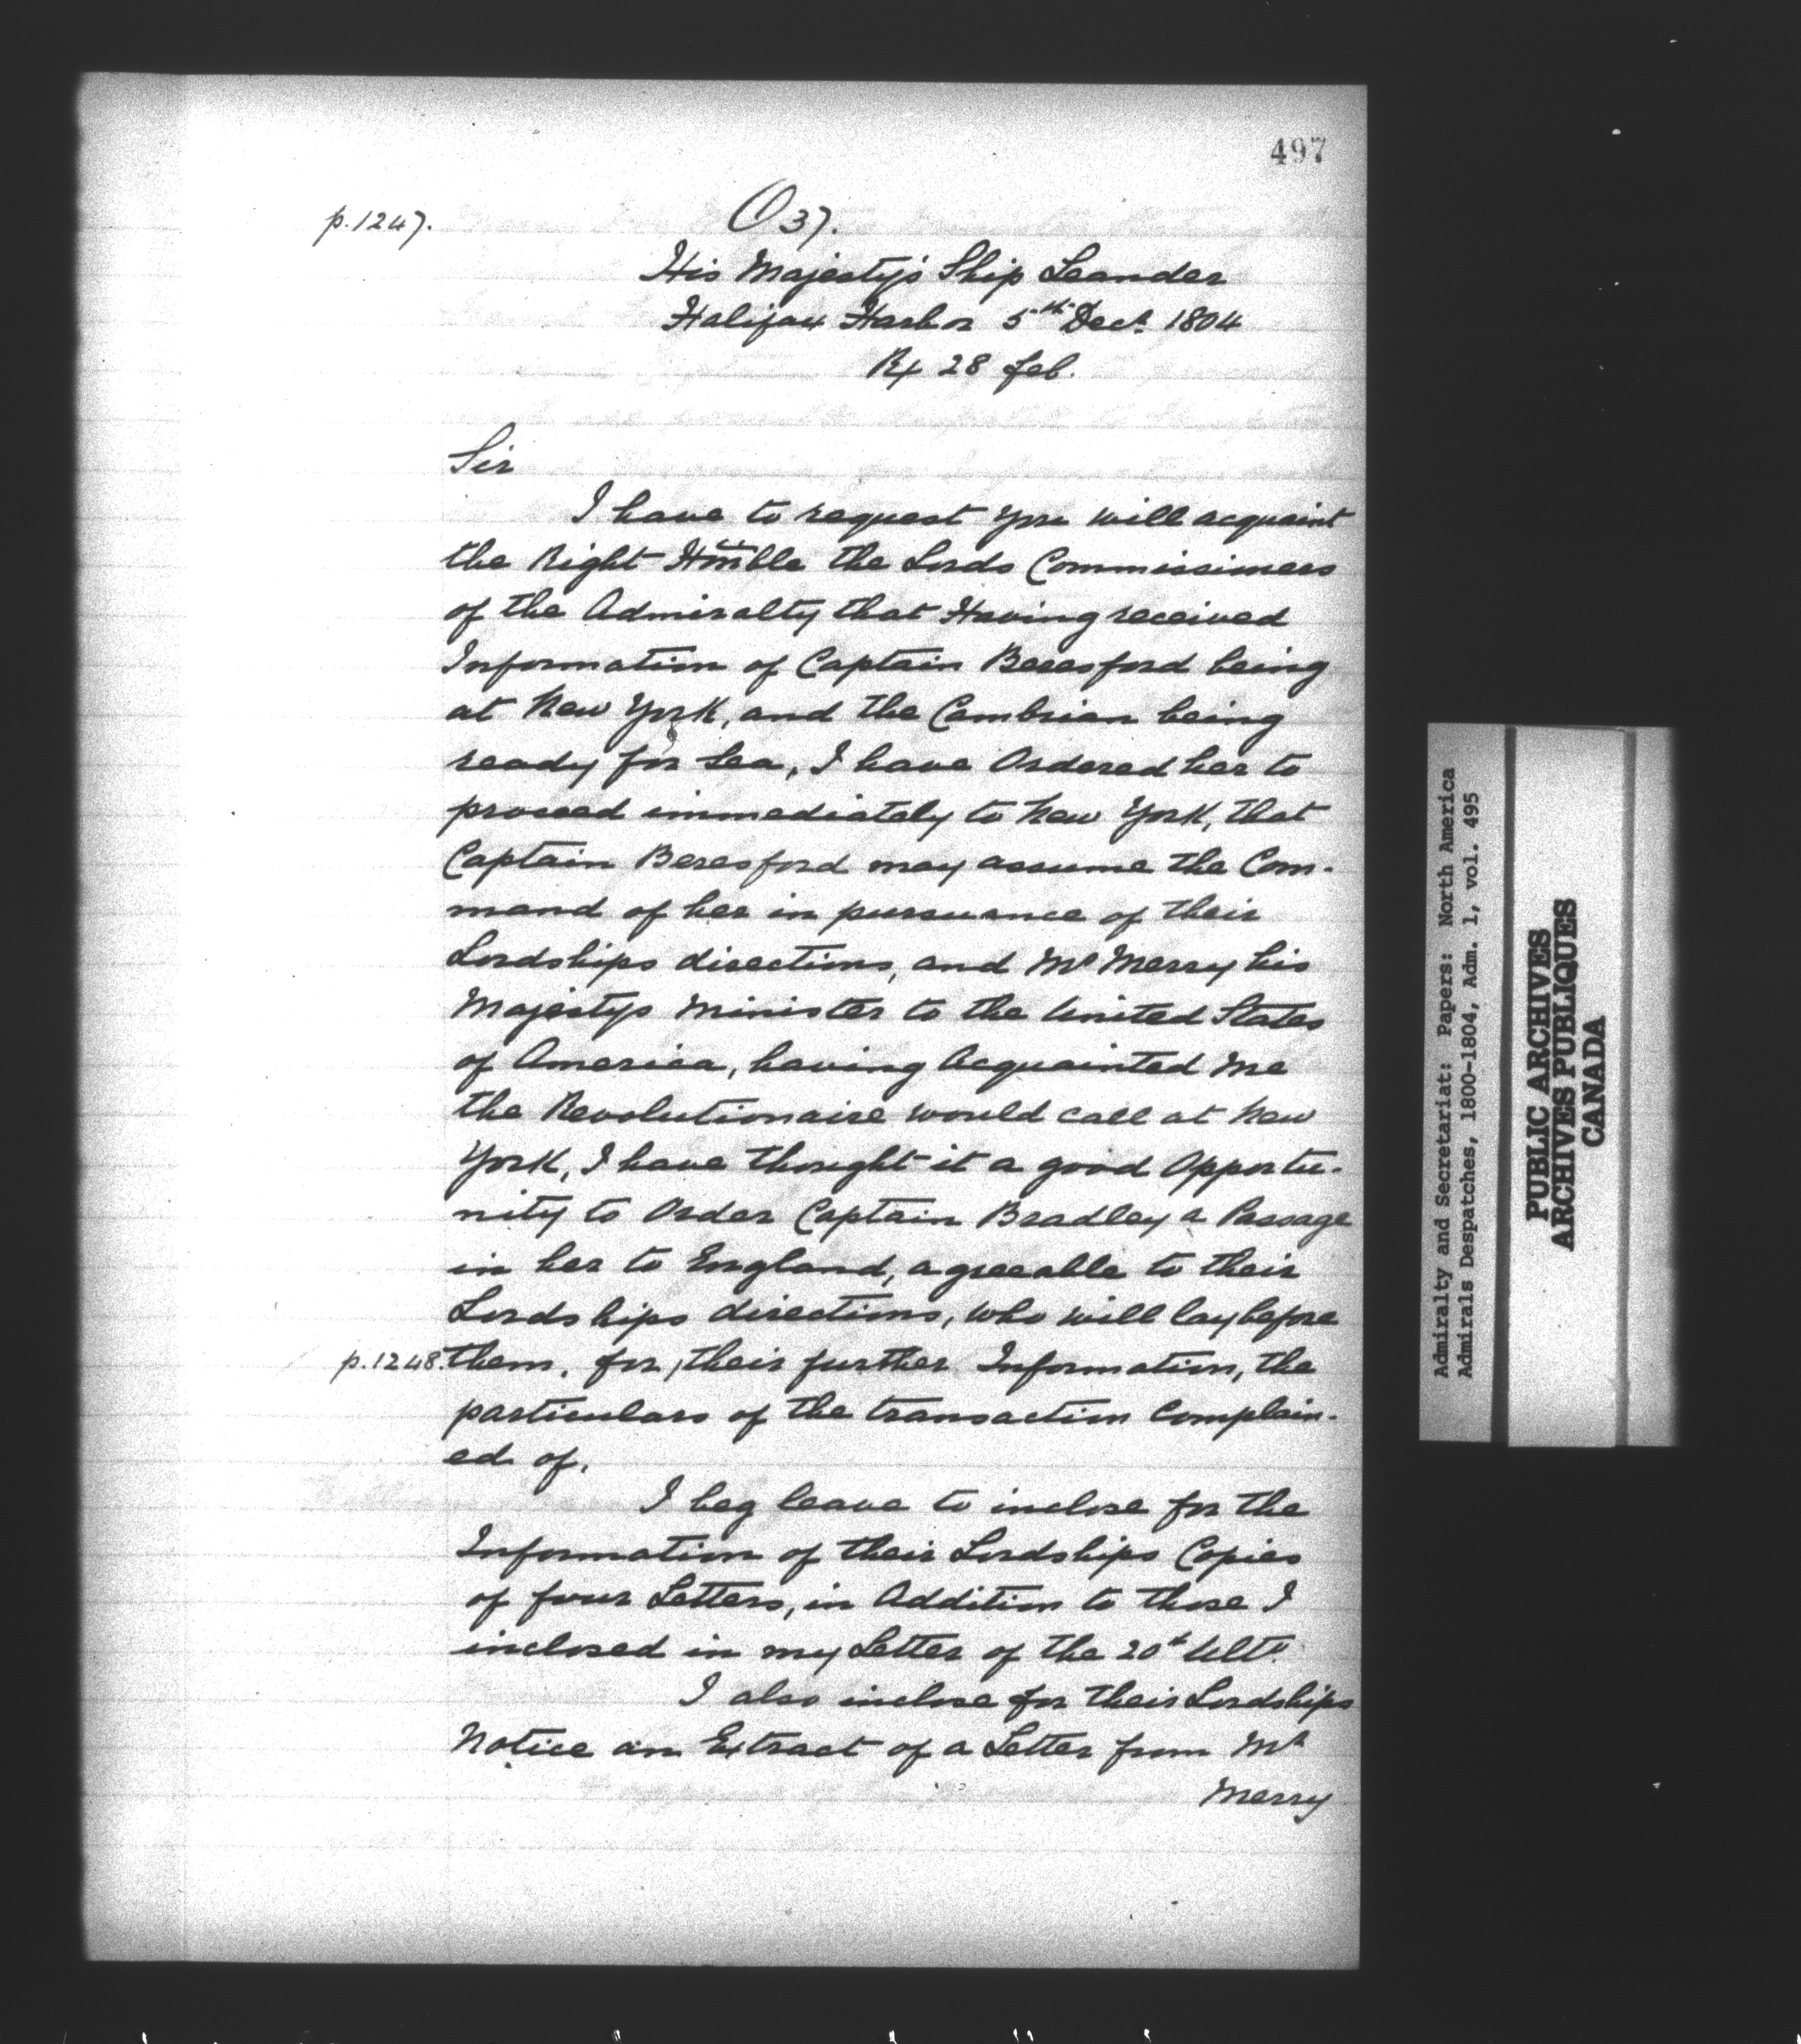 497
p.1247.
O 37.
His Majesty's Ship Leander
Halifax Harbor 5th Decr 1804
Rx 28 feb.
Sir
I have to request you will acquaint
the Right Honble the Lords Commissioners
of the Admiralty that Having received
Information of Captain Beresford being
at New York, and the Cambrian being
ready for Sea, I have Ordered her to
proceed immediately to New York, that
Captain Beresford may assume the Com-
mand of her in pursuance of their
Lordships directions, and Mr Merry his
Majestys Minister to the United States
of America, having Acquainted me
the Revolutionaire would call at New
York, I have thought it a good Opportu-
nity to Order Captain Bradley a Passage
in her to England, agreeable to their
Lordships directions, who will lay before
p.1248. them, for, their further Information, the
particulars of the transaction Complain-
ed of.
I beg leave to inclose for the
Information of their Lordships Copies
of four Letters, in Addition to those I
inclosed in my Letter of the 20th Ulto.
I also inclose for their Lordships
Notice an Extract of a Letter from Mr
Merry
Admiralty and Secretariat: Papers: North America
Admirals Despatches, 1800-1804, Adm. 1, vol. 495
PUBLIC ARCHIVES
ARCHIVES PUBLIQUES
CANADA